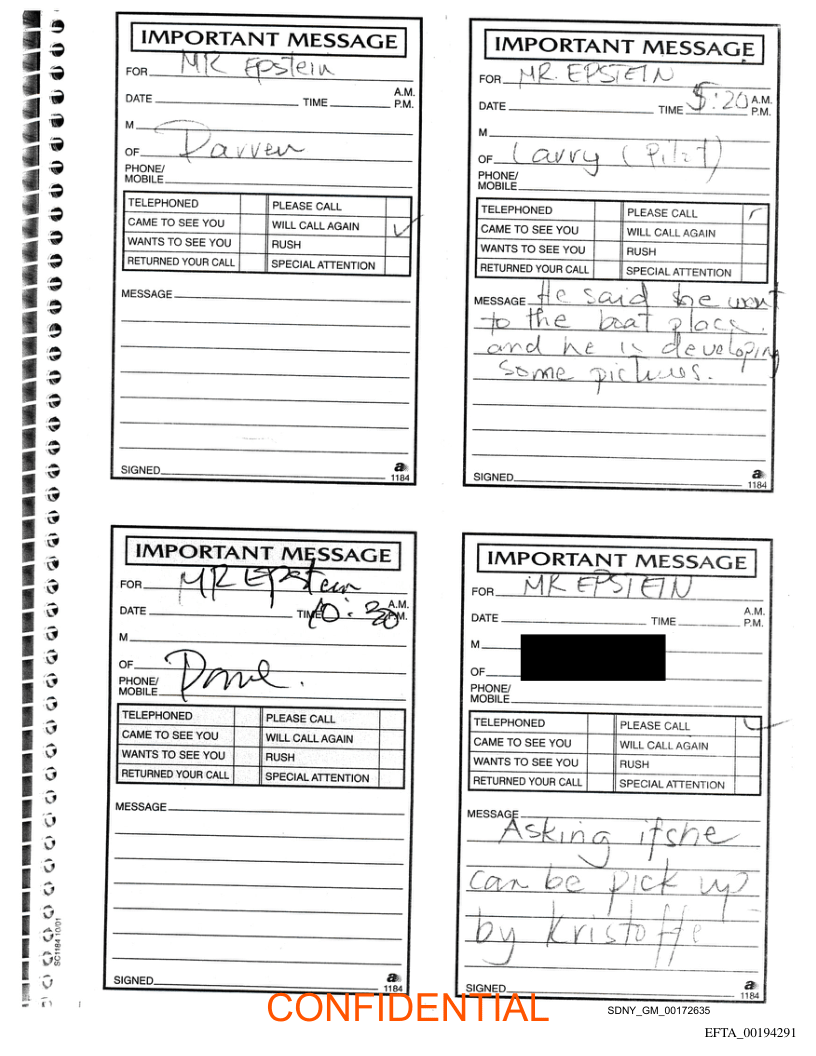 IMPORTANT MESSAGE
FOR MR Epstein
DATE TIME A.M. P.M.
M
OF Darren
PHONE/ MOBILE
TELEPHONED PLEASE CALL
CAME TO SEE YOU WILL CALL AGAIN ✓
WANTS TO SEE YOU RUSH
RETURNED YOUR CALL SPECIAL ATTENTION
MESSAGE
SIGNED
a
1184
IMPORTANT MESSAGE
FOR MR. EPSTEIN
DATE TIME 5:20 A.M. P.M.
M
OF Larry (Pilot)
PHONE/ MOBILE
TELEPHONED PLEASE CALL ✓
CAME TO SEE YOU WILL CALL AGAIN
WANTS TO SEE YOU RUSH
RETURNED YOUR CALL SPECIAL ATTENTION
MESSAGE He said he went
to the boat place.
and he is developing
some pictures.
SIGNED
a
1184
IMPORTANT MESSAGE
FOR MR EPstein
DATE TIME 10:30 A.M. P.M.
M
OF
PHONE/ MOBILE
TELEPHONED PLEASE CALL
CAME TO SEE YOU WILL CALL AGAIN
WANTS TO SEE YOU RUSH
RETURNED YOUR CALL SPECIAL ATTENTION
MESSAGE
SIGNED
a
1184
IMPORTANT MESSAGE
FOR MR EPSTEIN
DATE TIME A.M. P.M.
M
OF
PHONE/ MOBILE
TELEPHONED PLEASE CALL ✓
CAME TO SEE YOU WILL CALL AGAIN
WANTS TO SEE YOU RUSH
RETURNED YOUR CALL SPECIAL ATTENTION
MESSAGE
Asking if she
can be pick up
by Kristoffe
SIGNED
a
1184
SC1184 10/01
CONFIDENTIAL
SDNY_GM_00172635
EFTA_00194291